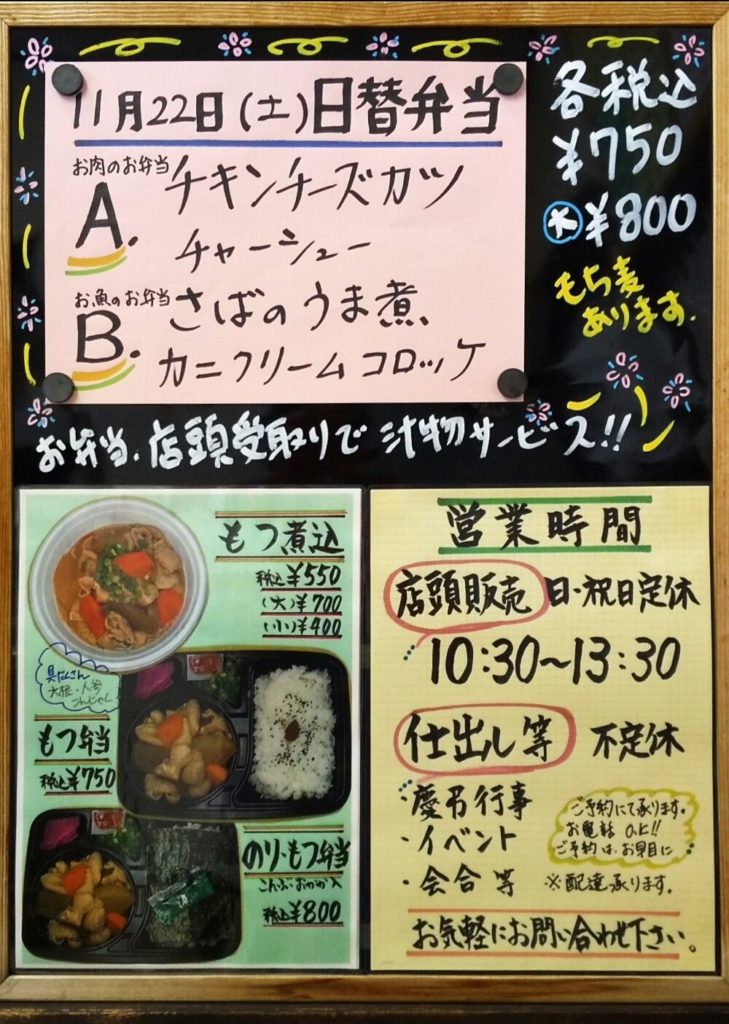 11月22日(土)日替弁当
お肉のお弁当
A. チキンチーズカツ
チャーシュー
お魚のお弁当
B. さばのうま煮
カニクリームコロッケ
各税込
¥750
大 ¥800
もち麦
あります。
お弁当、店頭受取りで汁物サービス!!
もつ煮込
税込¥550
(大)¥700
(小)¥400
具だくさん
大根・人参
こんにゃく
もつ弁当
税込¥750
のり・もつ弁当
こんぶおかか入
税込¥800
営業時間
店頭販売 日・祝日定休
10:30〜13:30
仕出し等 不定休
・慶弔行事
・イベント
・会合等
ご予約にて承ります。
お電話 O.K!!
ご予約は、お早目に
※配達承ります。
お気軽にお問い合わせ下さい。